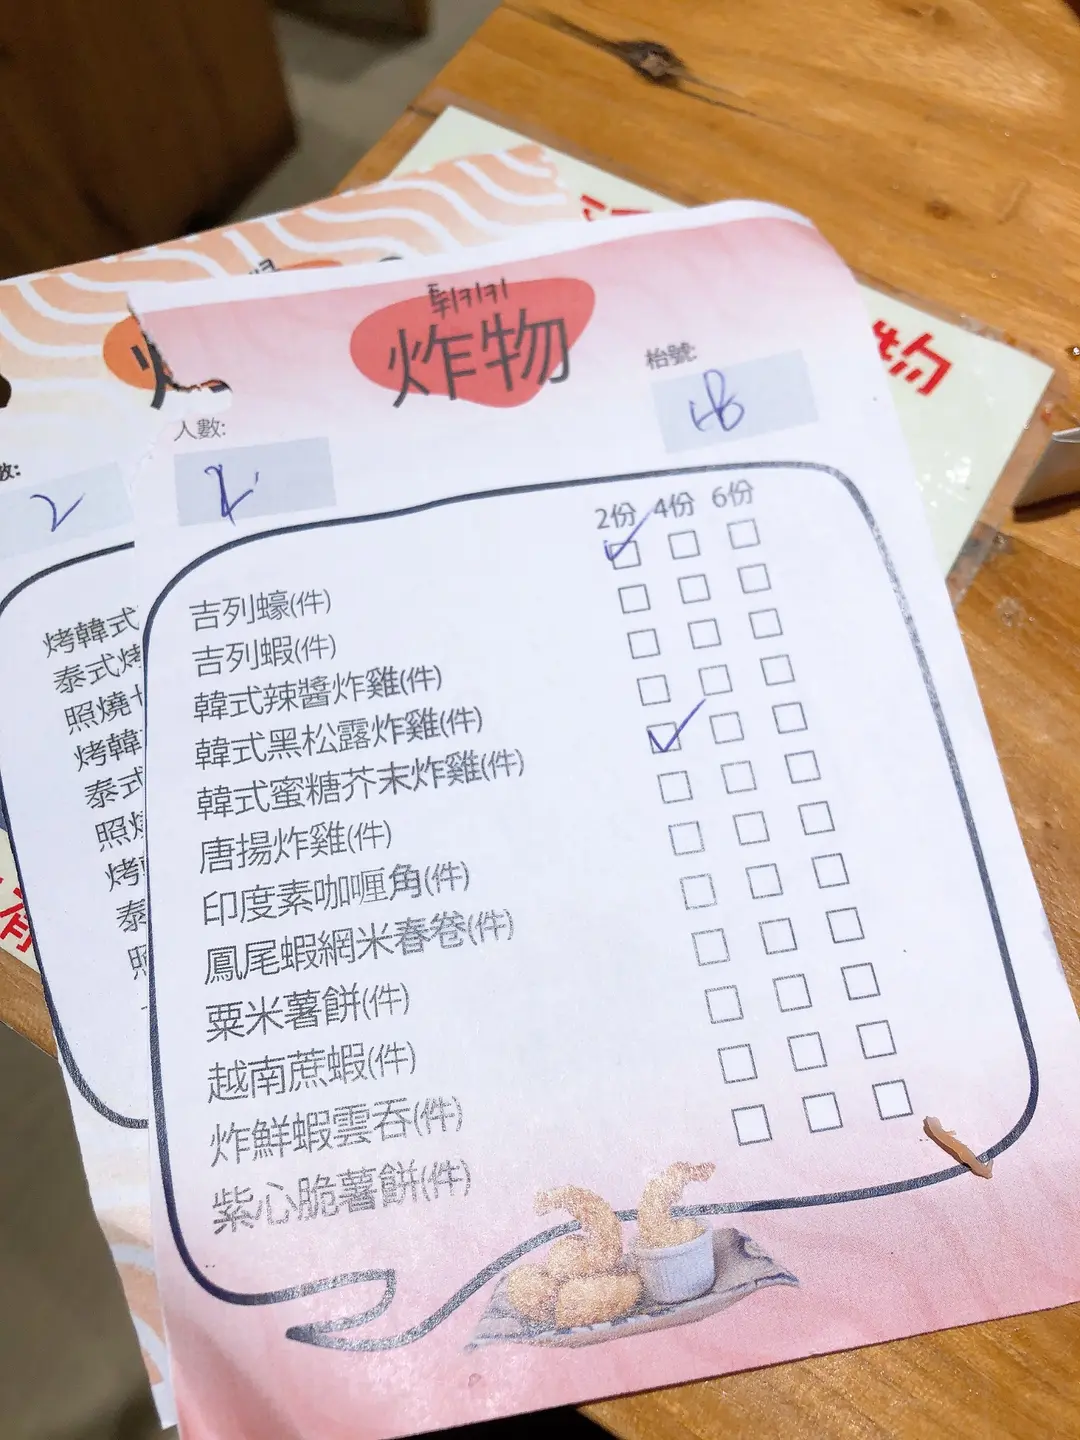 튀키키
炸物
枱號:
18
人數:
2
2份 4份 6份
吉列蠔(件)
吉列蝦(件)
韓式辣醬炸雞(件)
韓式黑松露炸雞(件)
韓式蜜糖芥末炸雞(件)
唐揚炸雞(件)
印度素咖喱角(件)
鳳尾蝦網米春卷(件)
粟米薯餅(件)
越南蔗蝦(件)
炸鮮蝦雲吞(件)
紫心脆薯餅(件)
數:
2
烤韓式
泰式烤
照燒
烤韓
泰式
照燒
烤
泰
照
物